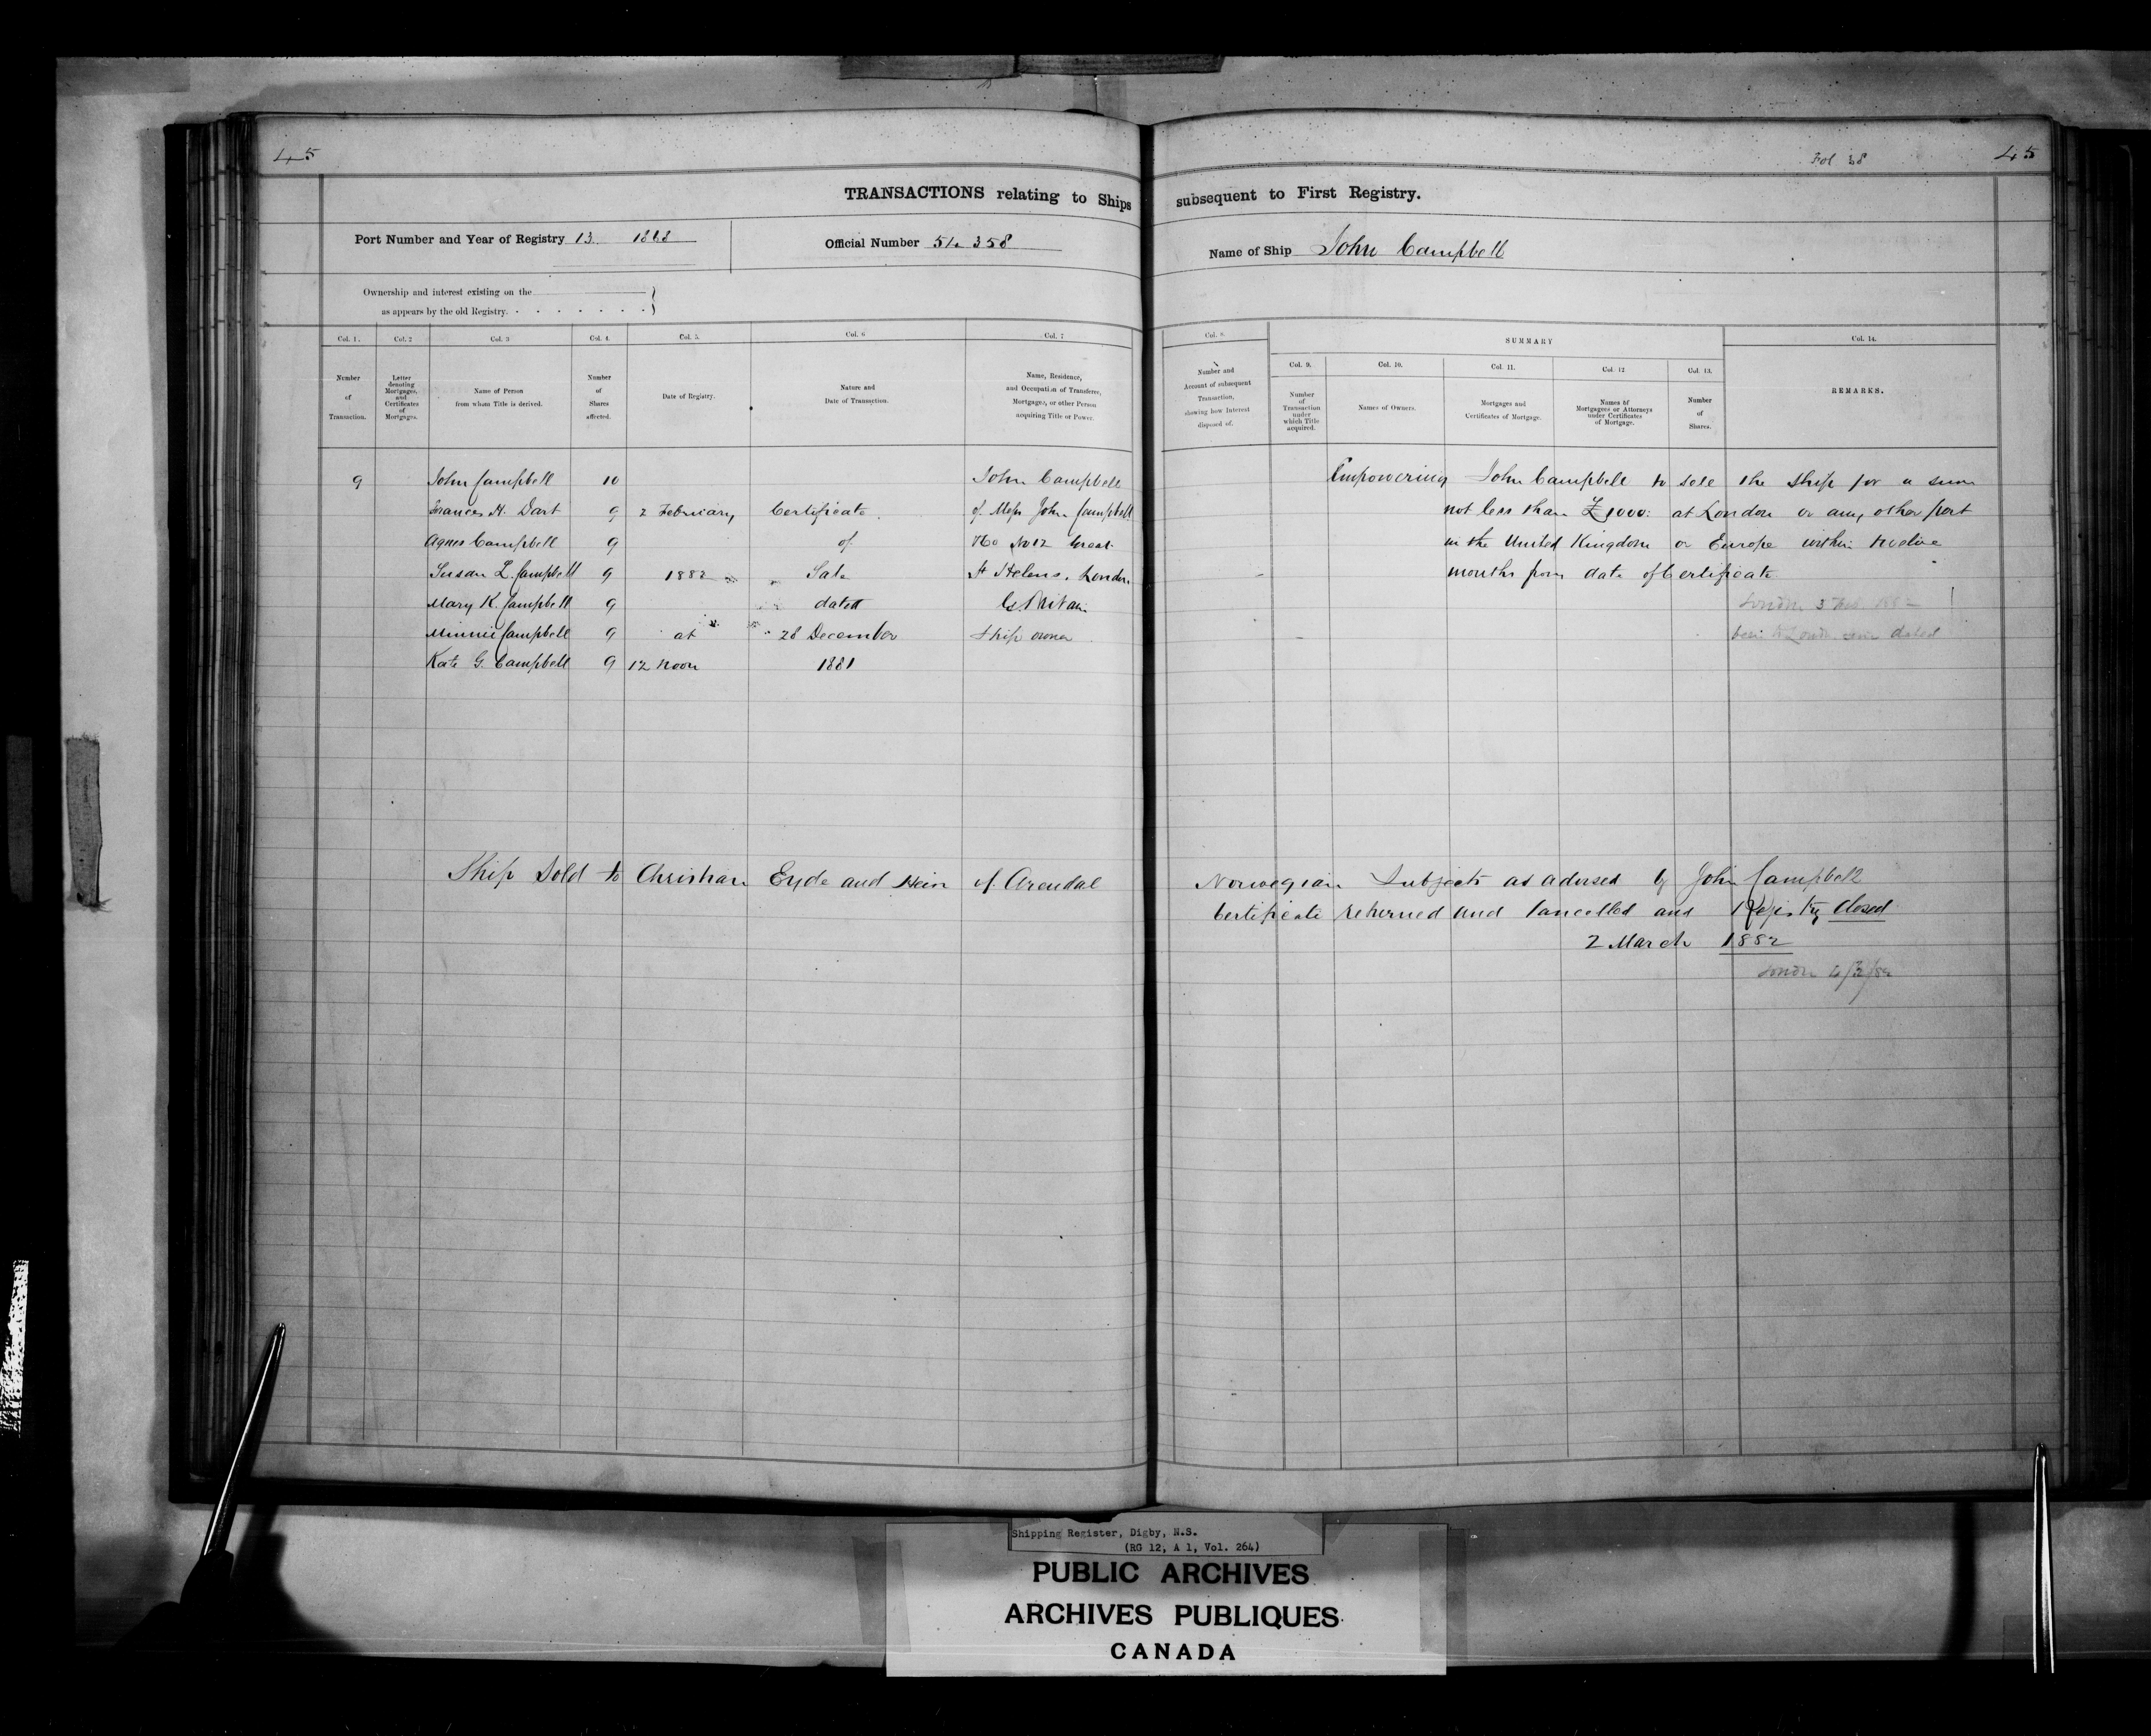 45
Fol 38 45
TRANSACTIONS relating to Ships subsequent to First Registry.
Port Number and Year of Registry 13. 1868 Official Number 54.358 Name of Ship John Campbell
Ownership and interest existing on the
as appears by the old Registry.
Col. 1. Col. 2 Col. 3 Col. 4. Col. 5. Col. 6 Col. 7 Col. 8. SUMMARY Col. 14.
Col. 9. Col. 10. Col. 11. Col. 12 Col. 13.
Number of Transaction.
Letter denoting Mortgages, and Certificates of Mortgages.
Name of Person from whom Title is derived.
Number of Shares affected.
Date of Registry.
Nature and Date of Transaction.
Name, Residence, and Occupation of Transferee, Mortgagee, or other Person acquiring Title or Power.
Number and Account of subsequent Transaction, showing how Interest disposed of.
Number of Transaction under which Title acquired.
Names of Owners.
Mortgages and Certificates of Mortgage.
Names of Mortgagees or Attorneys under Certificates of Mortgage.
Number of Shares.
REMARKS.
9 John Campbell 10 John Campbell Empowering John Campbell to sell the Ship for a sum
Frances H. Dart 9 2 February Certificate of Messrs John Campbell not less than £1000: at London or any other port
Agnes Campbell 9 of &Co No 12 Great in the United Kingdom or Europe within twelve
Susan L. Campbell 9 1882 Sale St Helens, London months from date of Certificate
Mary K. Campbell 9 dated Gt Britain London 3 Feb.
Minnie Campbell 9 at 28 December Ship owner London dated
Kate G. Campbell 9 12 Noon 1881
Ship Sold to Christian Eyde and Hein of Arendal Norwegian Subjects as advised by John Campbell
Certificate returned and Cancelled and Registry Closed
2 March 1882
London 4/3/82
Shipping Register, Digby, N.S.
(RG 12, A 1, Vol. 264)
PUBLIC ARCHIVES
ARCHIVES PUBLIQUES
CANADA